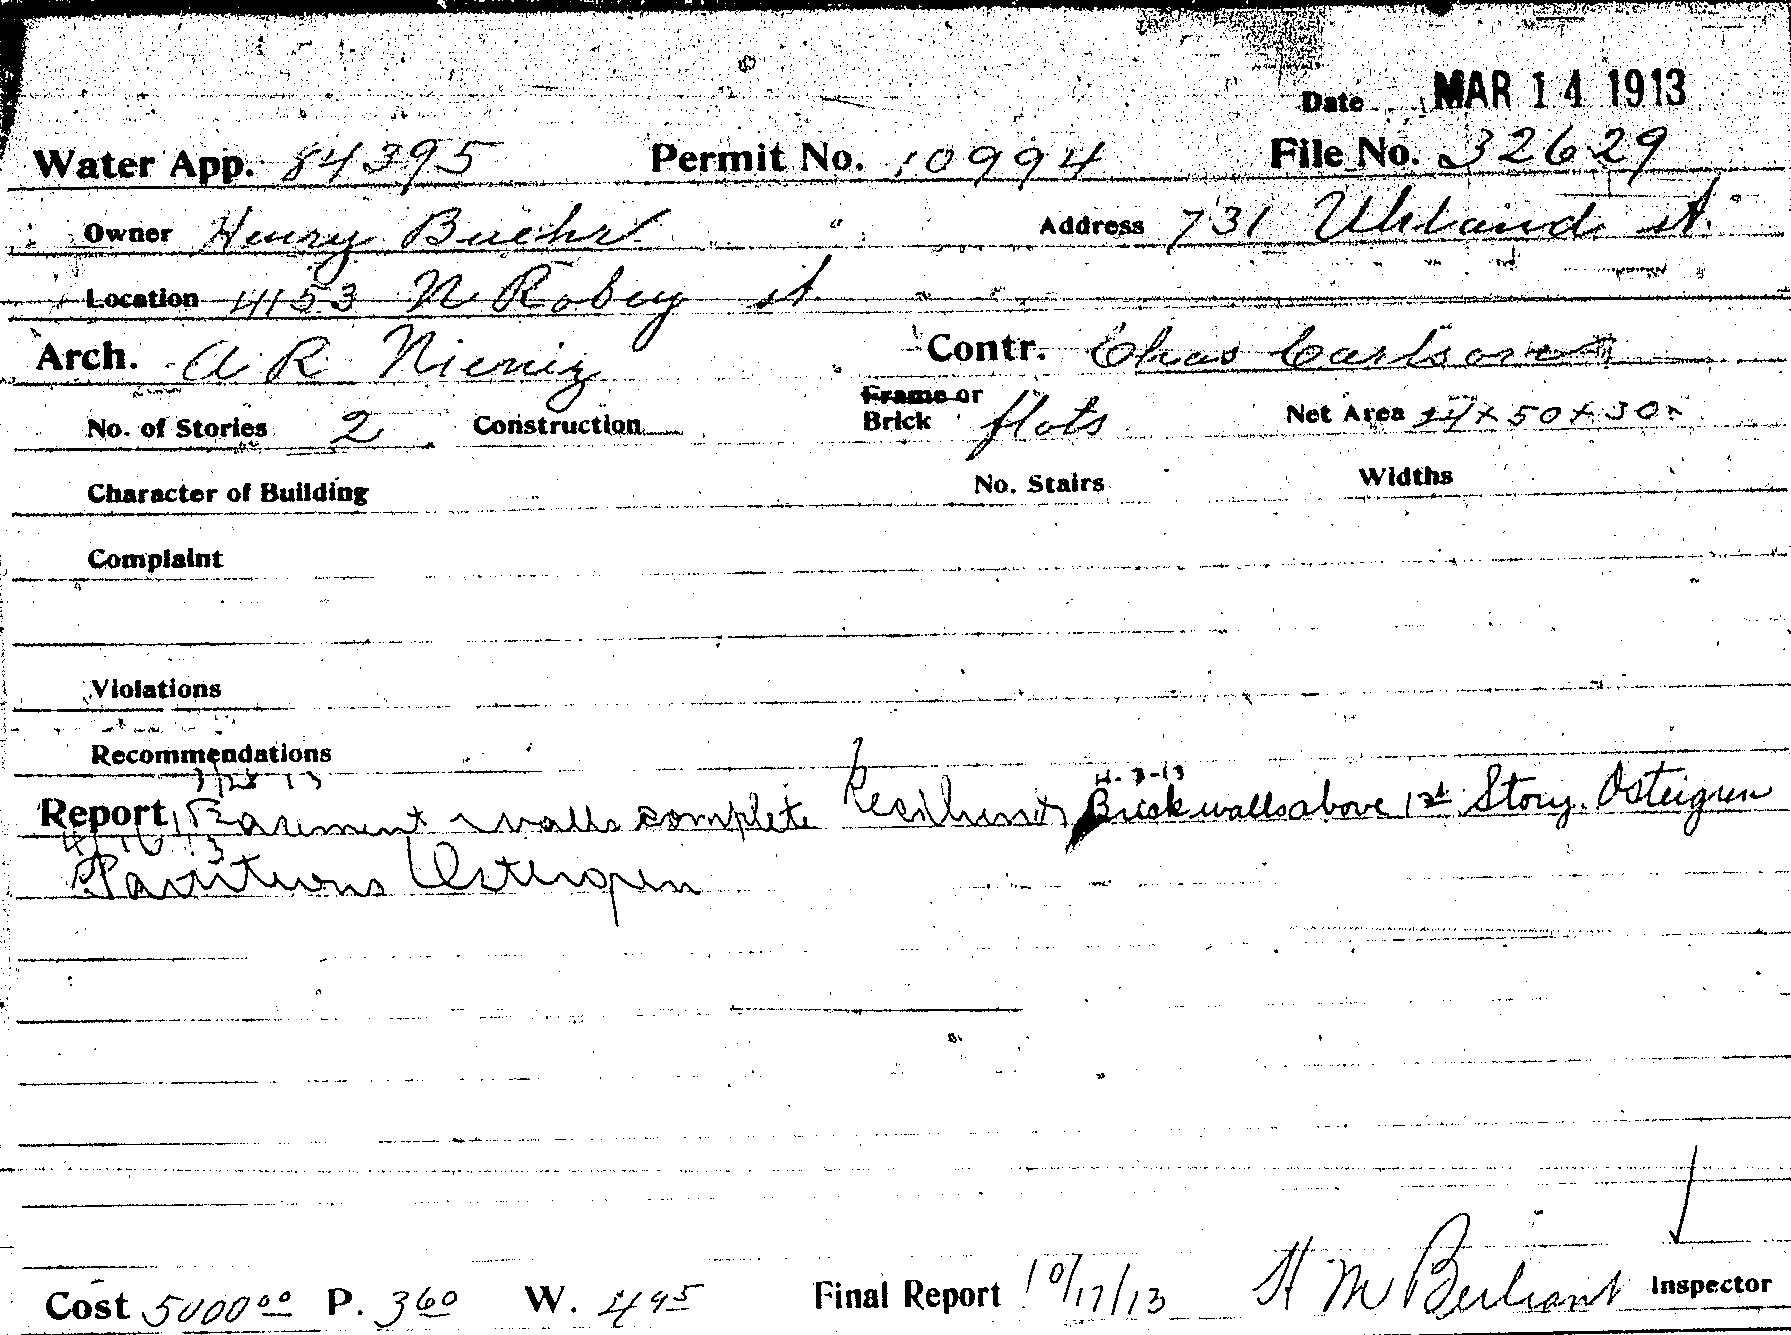 Date MAR 14 1913
Water App. 84395 Permit No. 10994 File No. 32629
Owner Henry Buehr Address 731 Uhland st.
Location 4153 N Robey st.
Arch. A R Contr. Chas Carlson
No. of Stories 2 Construction Frame or Brick flats Net Area 24 x 50 x 30
Character of Building No. Stairs Widths
Complaint
Violations
Recommendations
3/28 13 4-3-13
Report Basement walls complete Brick walls above 1st Story. Ostergren
4/16 13
Partitions Ostergren
Cost 5000 00 P. 360 W. 495 Final Report 10/17/13 H M Inspector